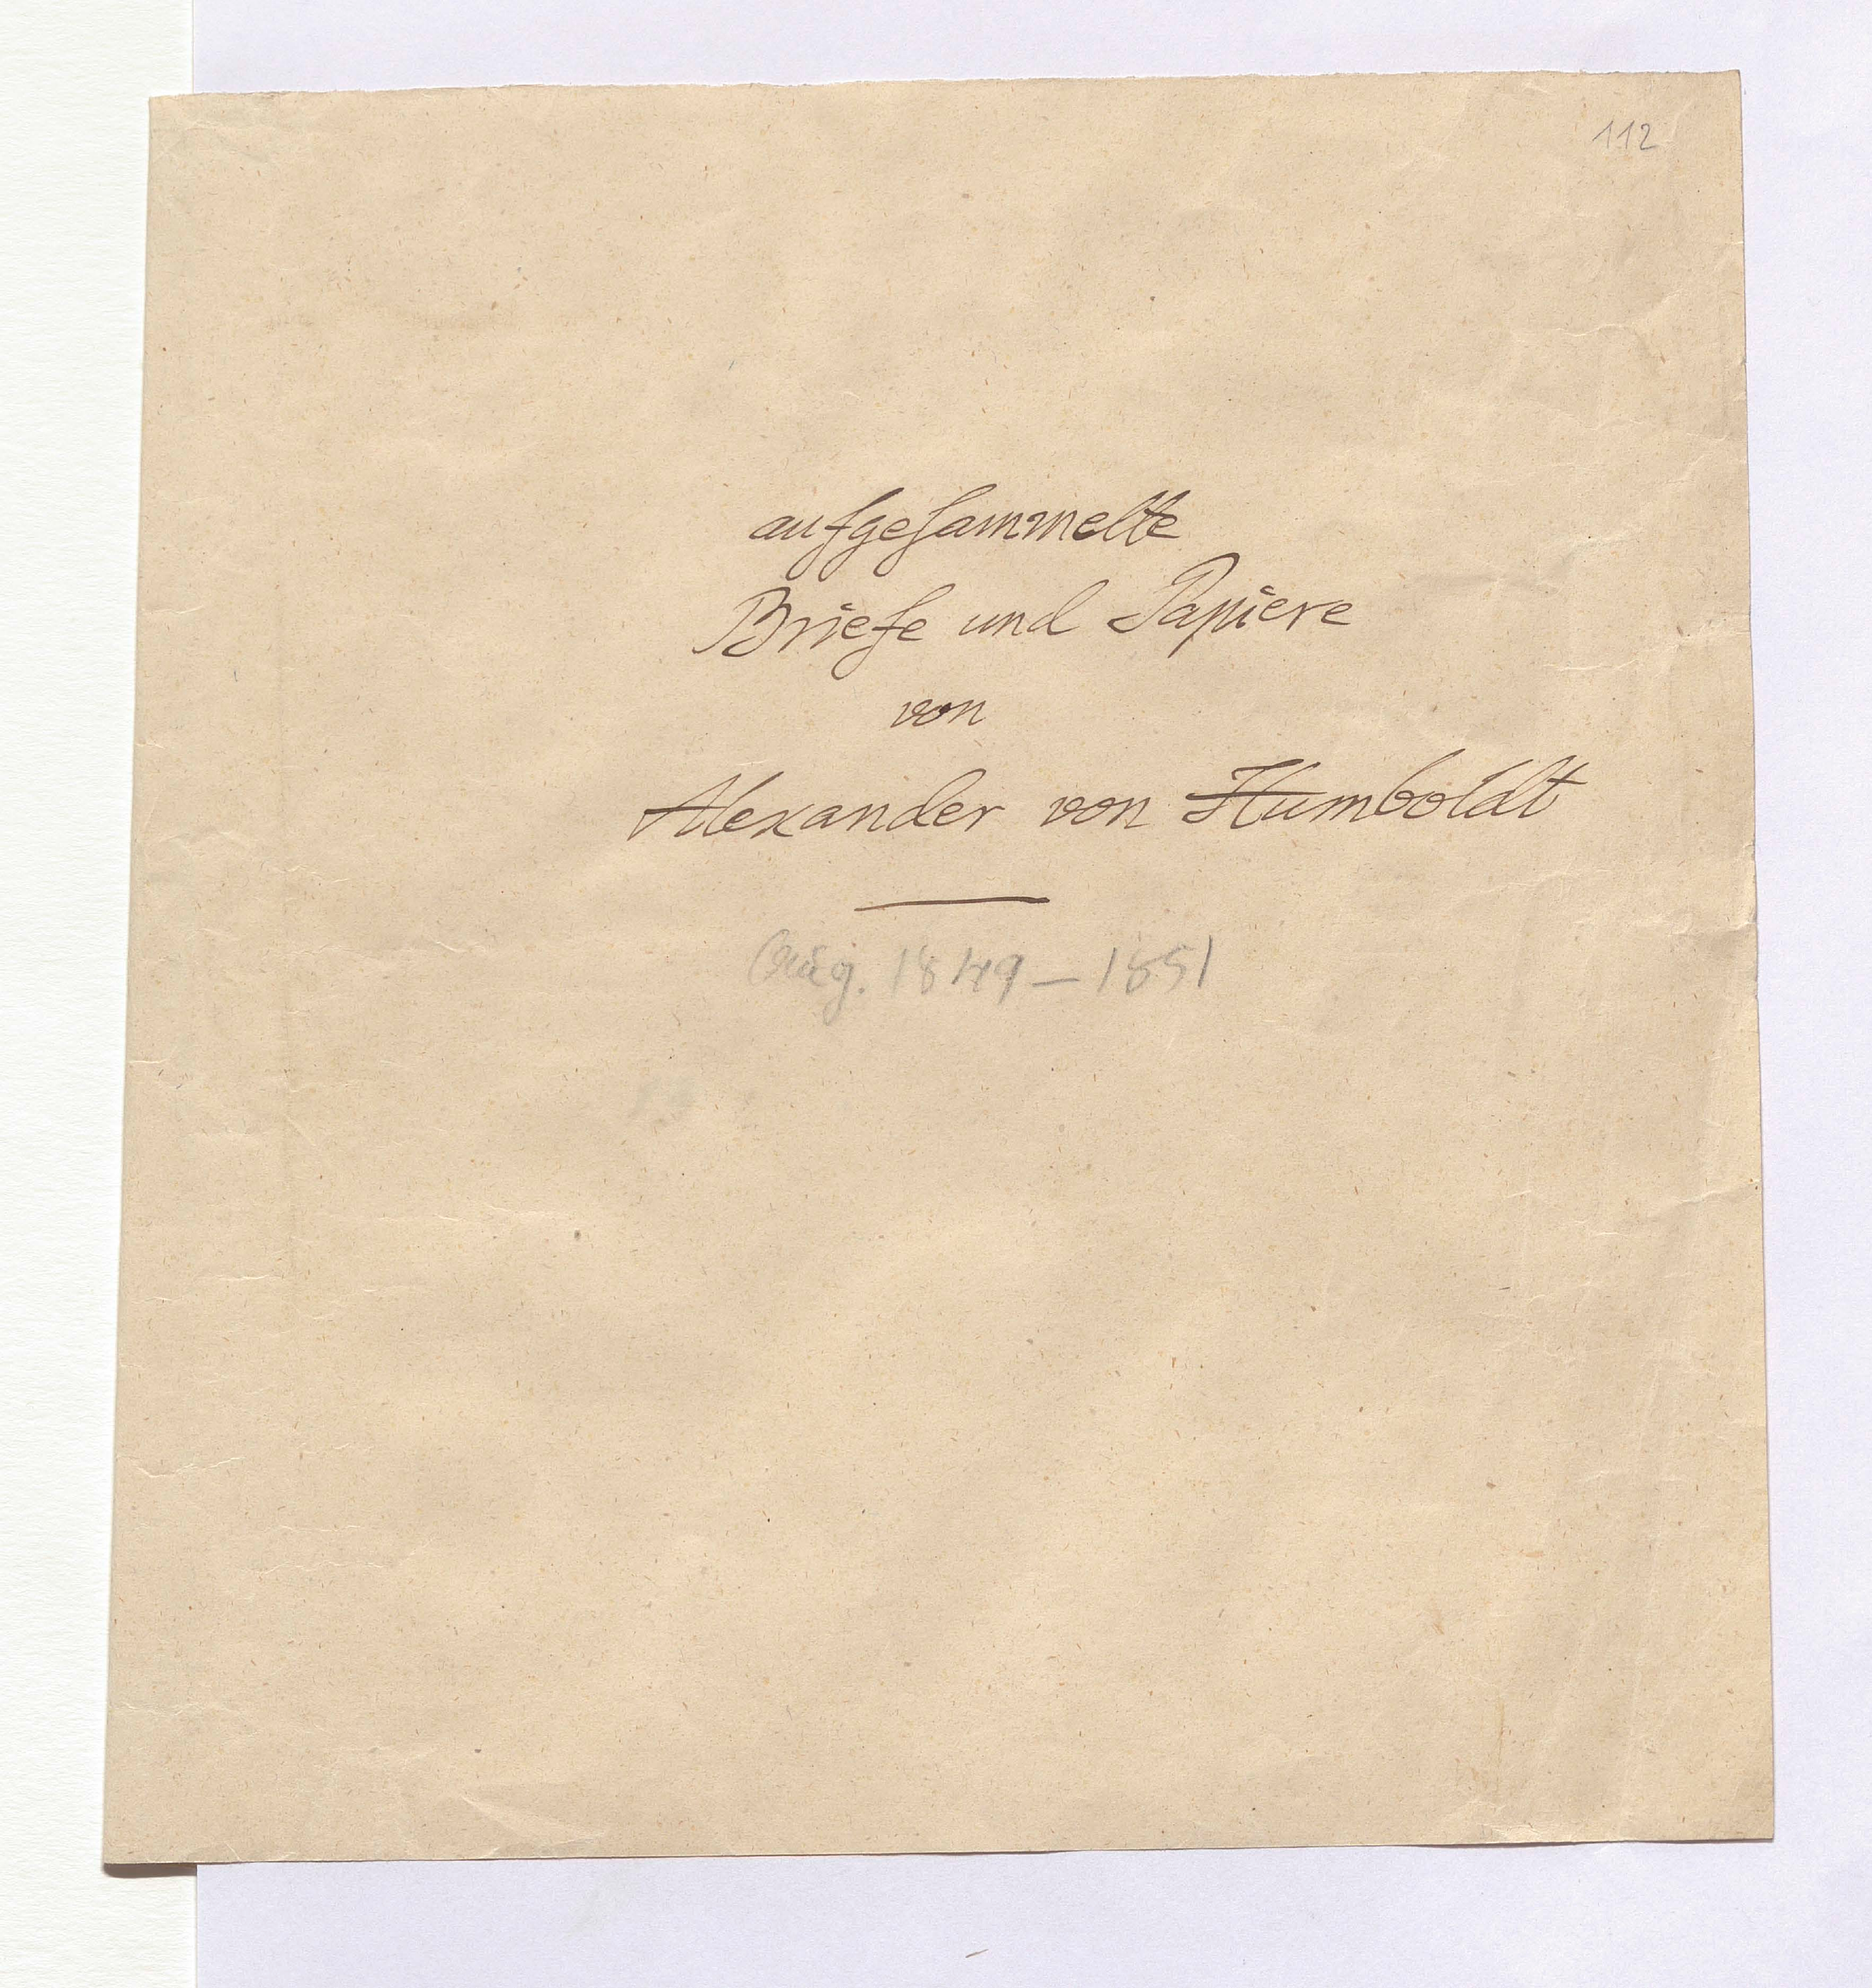 112
aufgesammelte
Briefe und Papiere
von
Alexander von Humboldt
1849–1851